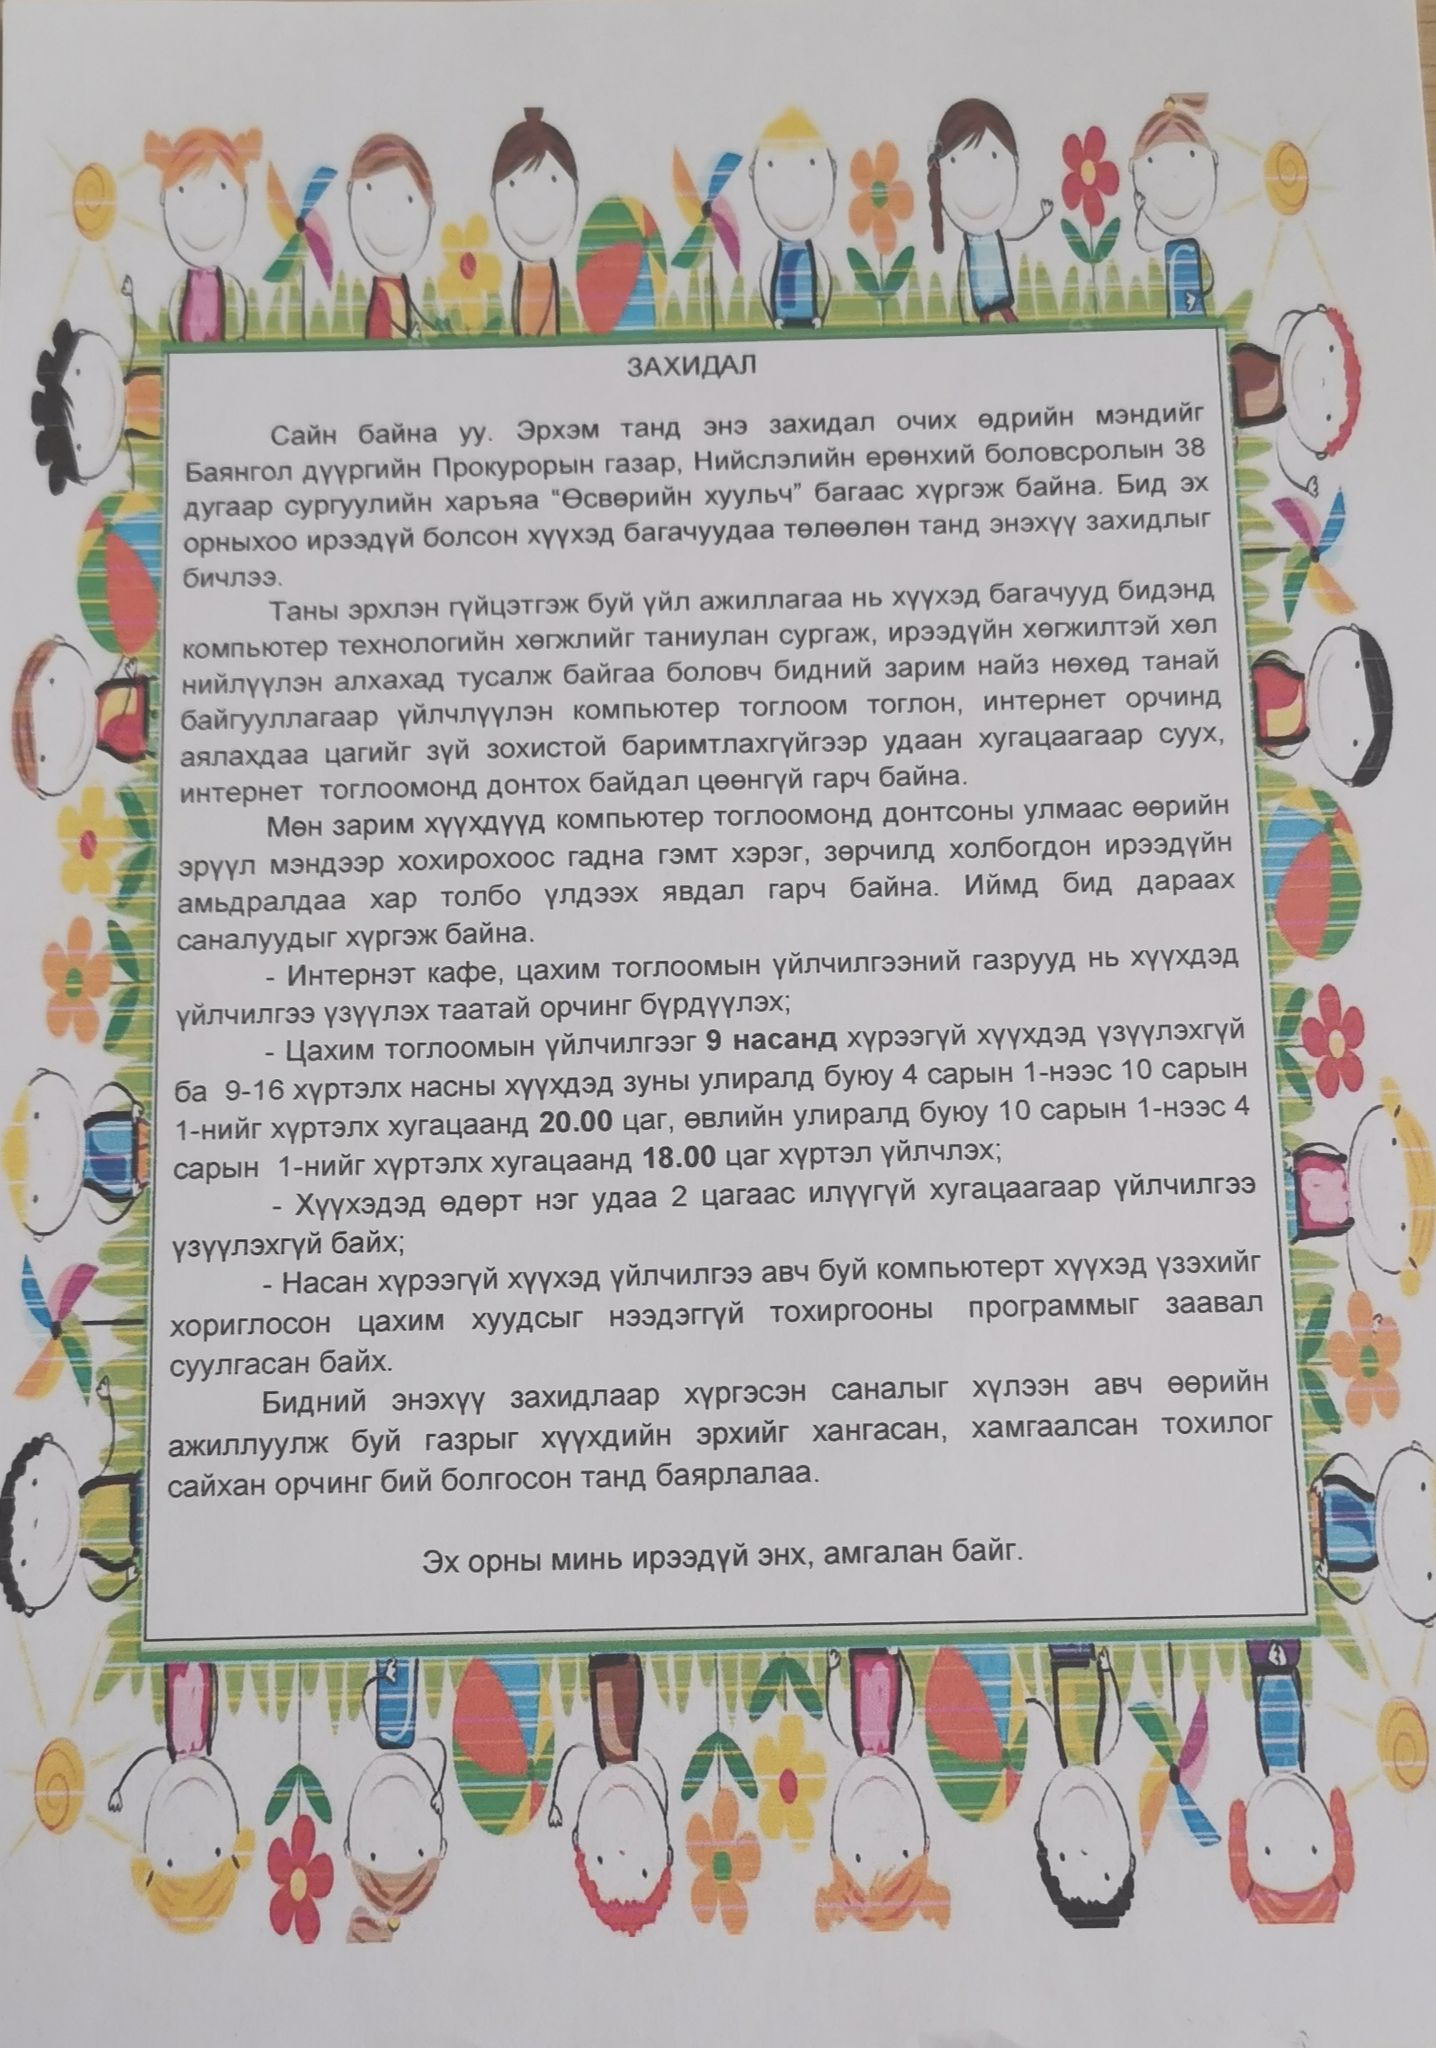 ЗАХИДАЛ
Сайн байна уу. Эрхэм танд энэ захидал очих өдрийн мэндийг
Баянгол дүүргийн Прокурорын газар, Нийслэлийн ерөнхий боловсролын 38
дугаар сургуулийн харъяа "Өсвөрийн хуульч" багаас хүргэж байна. Бид эх
орныхоо ирээдүй болсон хүүхэд багачуудаа төлөөлөн танд энэхүү захидлыг
бичлээ.
Таны эрхлэн гүйцэтгэж буй үйл ажиллагаа нь хүүхэд багачууд бидэнд
компьютер технологийн хөгжлийг таниулан сургаж, ирээдүйн хөгжилтэй хөл
нийлүүлэн алхахад тусалж байгаа боловч бидний зарим найз нөхөд танай
байгууллагаар үйлчлүүлэн компьютер тоглоом тоглон, интернет орчинд
аялахдаа цагийг зүй зохистой баримтлахгүйгээр удаан хугацаагаар суух,
интернет тоглоомонд донтох байдал цөөнгүй гарч байна.
Мөн зарим хүүхдүүд компьютер тоглоомонд донтсоны улмаас өөрийн
эрүүл мэндээр хохирохоос гадна гэмт хэрэг, зөрчилд холбогдон ирээдүйн
амьдралдаа хар толбо үлдээх явдал гарч байна. Иймд бид дараах
саналуудыг хүргэж байна.
- Интернэт кафе, цахим тоглоомын үйлчилгээний газрууд нь хүүхдэд
үйлчилгээ үзүүлэх таатай орчинг бүрдүүлэх;
- Цахим тоглоомын үйлчилгээг 9 насанд хүрээгүй хүүхдэд үзүүлэхгүй
ба 9-16 хүртэлх насны хүүхдэд зуны улиралд буюу 4 сарын 1-нээс 10 сарын
1-нийг хүртэлх хугацаанд 20.00 цаг, өвлийн улиралд буюу 10 сарын 1-нээс 4
сарын 1-нийг хүртэлх хугацаанд 18.00 цаг хүртэл үйлчлэх;
- Хүүхэдэд өдөрт нэг удаа 2 цагаас илүүгүй хугацаагаар үйлчилгээ
үзүүлэхгүй байх;
- Насан хүрээгүй хүүхэд үйлчилгээ авч буй компьютерт хүүхэд үзэхийг
хориглосон цахим хуудсыг нээдэггүй тохиргооны программыг заавал
суулгасан байх.
Бидний энэхүү захидлаар хүргэсэн саналыг хүлээн авч өөрийн
ажиллуулж буй газрыг хүүхдийн эрхийг хангасан, хамгаалсан тохилог
сайхан орчинг бий болгосон танд баярлалаа.
Эх орны минь ирээдүй энх, амгалан байг.